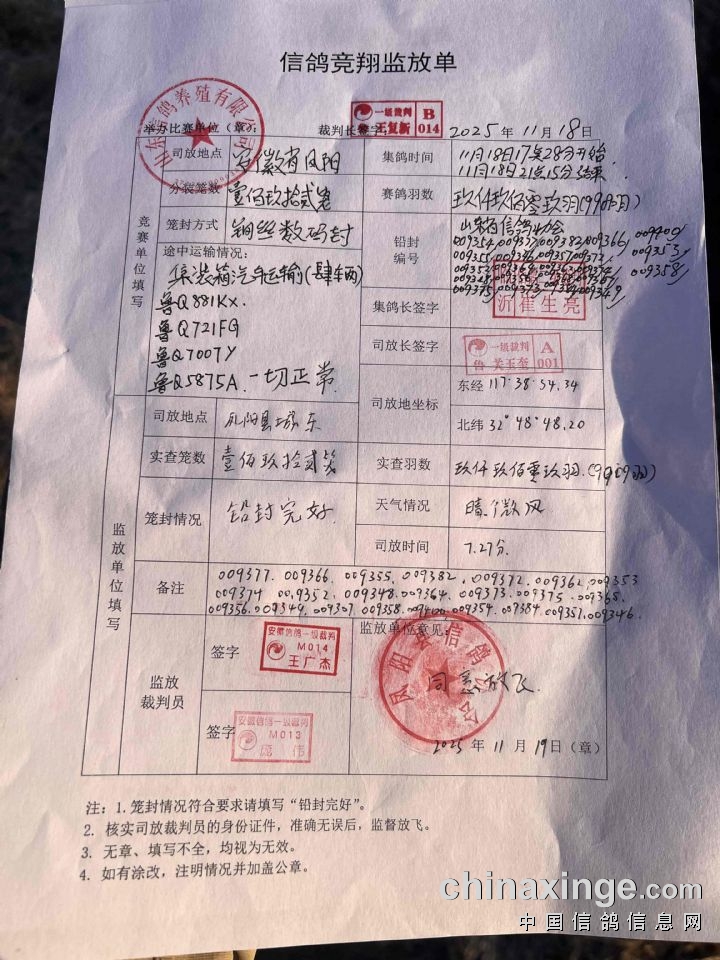 信鸽竞翔监放单
山东 信鸽养殖有限公司
一级裁判 B
王复新 014
举办比赛单位（章）： 裁判长签字： 2025 年 11 月 18 日
竞赛单位填写
司放地点 安徽省凤阳 集鸽时间 11月18日17点28分开始
11月18日21点15分结束
分装笼数 壹佰玖拾贰笼 赛鸽羽数 玖仟玖佰零玖羽(9909羽)
笼封方式 钢丝数码封 铅封编号 山东省信鸽协会
009354,009377,009382,009366,009400,
009353,
009358,
途中运输情况：
集装箱汽车运输(肆辆)
鲁Q881KX.
鲁Q721FG
鲁Q7007Y
鲁Q5875A.一切正常.
集鸽长签字 沂 崔生亮
司放长签字 一级裁判 A
鲁 关玉奎 001
司放地坐标 东经 117°38'54.34
北纬 32°48'48.20
监放单位填写
司放地点 凤阳县城东
实查笼数 壹佰玖拾贰笼 实查羽数 玖仟玖佰零玖羽.(9909羽)
笼封情况 铅封完好. 天气情况 晴 微风
司放时间 7.27分.
备注 009377. 009366. 009355. 009382. 009372. 009362. 009353
009374 009352. 009348. 009364. 009373. 009375. 009365.
009356. 009349. 009307. 009358. 009400. 009354. 009384. 009351. 009346.
监放裁判员
签字 安徽信鸽一级裁判
M014
王广杰
签字 安徽信鸽一级裁判
M013
伟
监放单位意见：
凤阳县信鸽协会
同意放飞.
2025 年 11 月 19 日（章）
注：1.笼封情况符合要求请填写“铅封完好”。
2. 核实司放裁判员的身份证件，准确无误后，监督放飞。
3. 无章、填写不全，均视为无效。
4. 如有涂改，注明情况并加盖公章。
chinaxinge.com
中国信鸽信息网